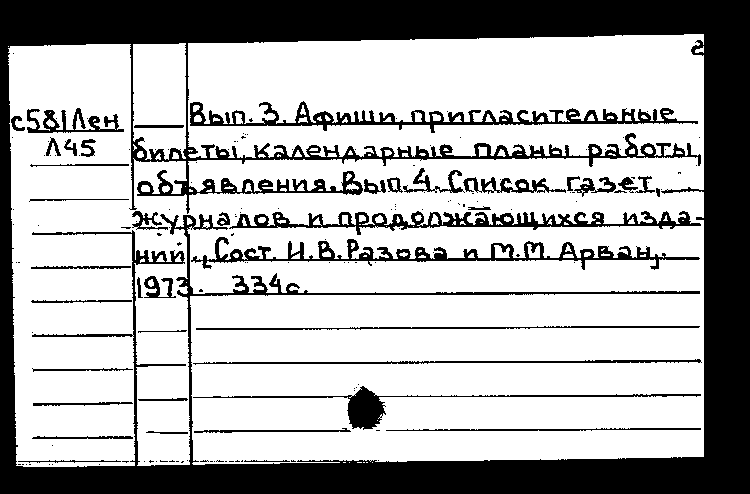 2
с581Лен Вып. 3. Афиши, пригласительные
Л45 билеты, календарные планы работы,
объявления. Вып. 4. Список газет,
журналов и продолжающихся изда-
ний. [Сост. И.В. Разова и М.М. Арван].
1973. 334с.